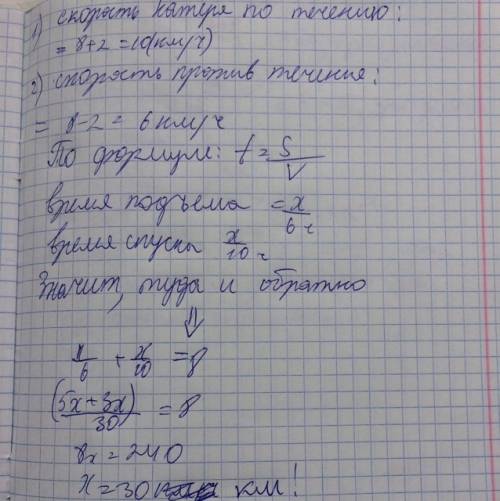 1) скорость катера по течению:
= 8+2=10(км/ч)
2) скорость против течения:
= 8-2= 6 км/ч
По формуле: t = S/V
время подъема = x/6 ч
время спуска x/10 ч
Значит, туда и обратно
⇓
x/6 + x/10 = 8
(5x+3x)/30 = 8
8x = 240
x = 30 км!